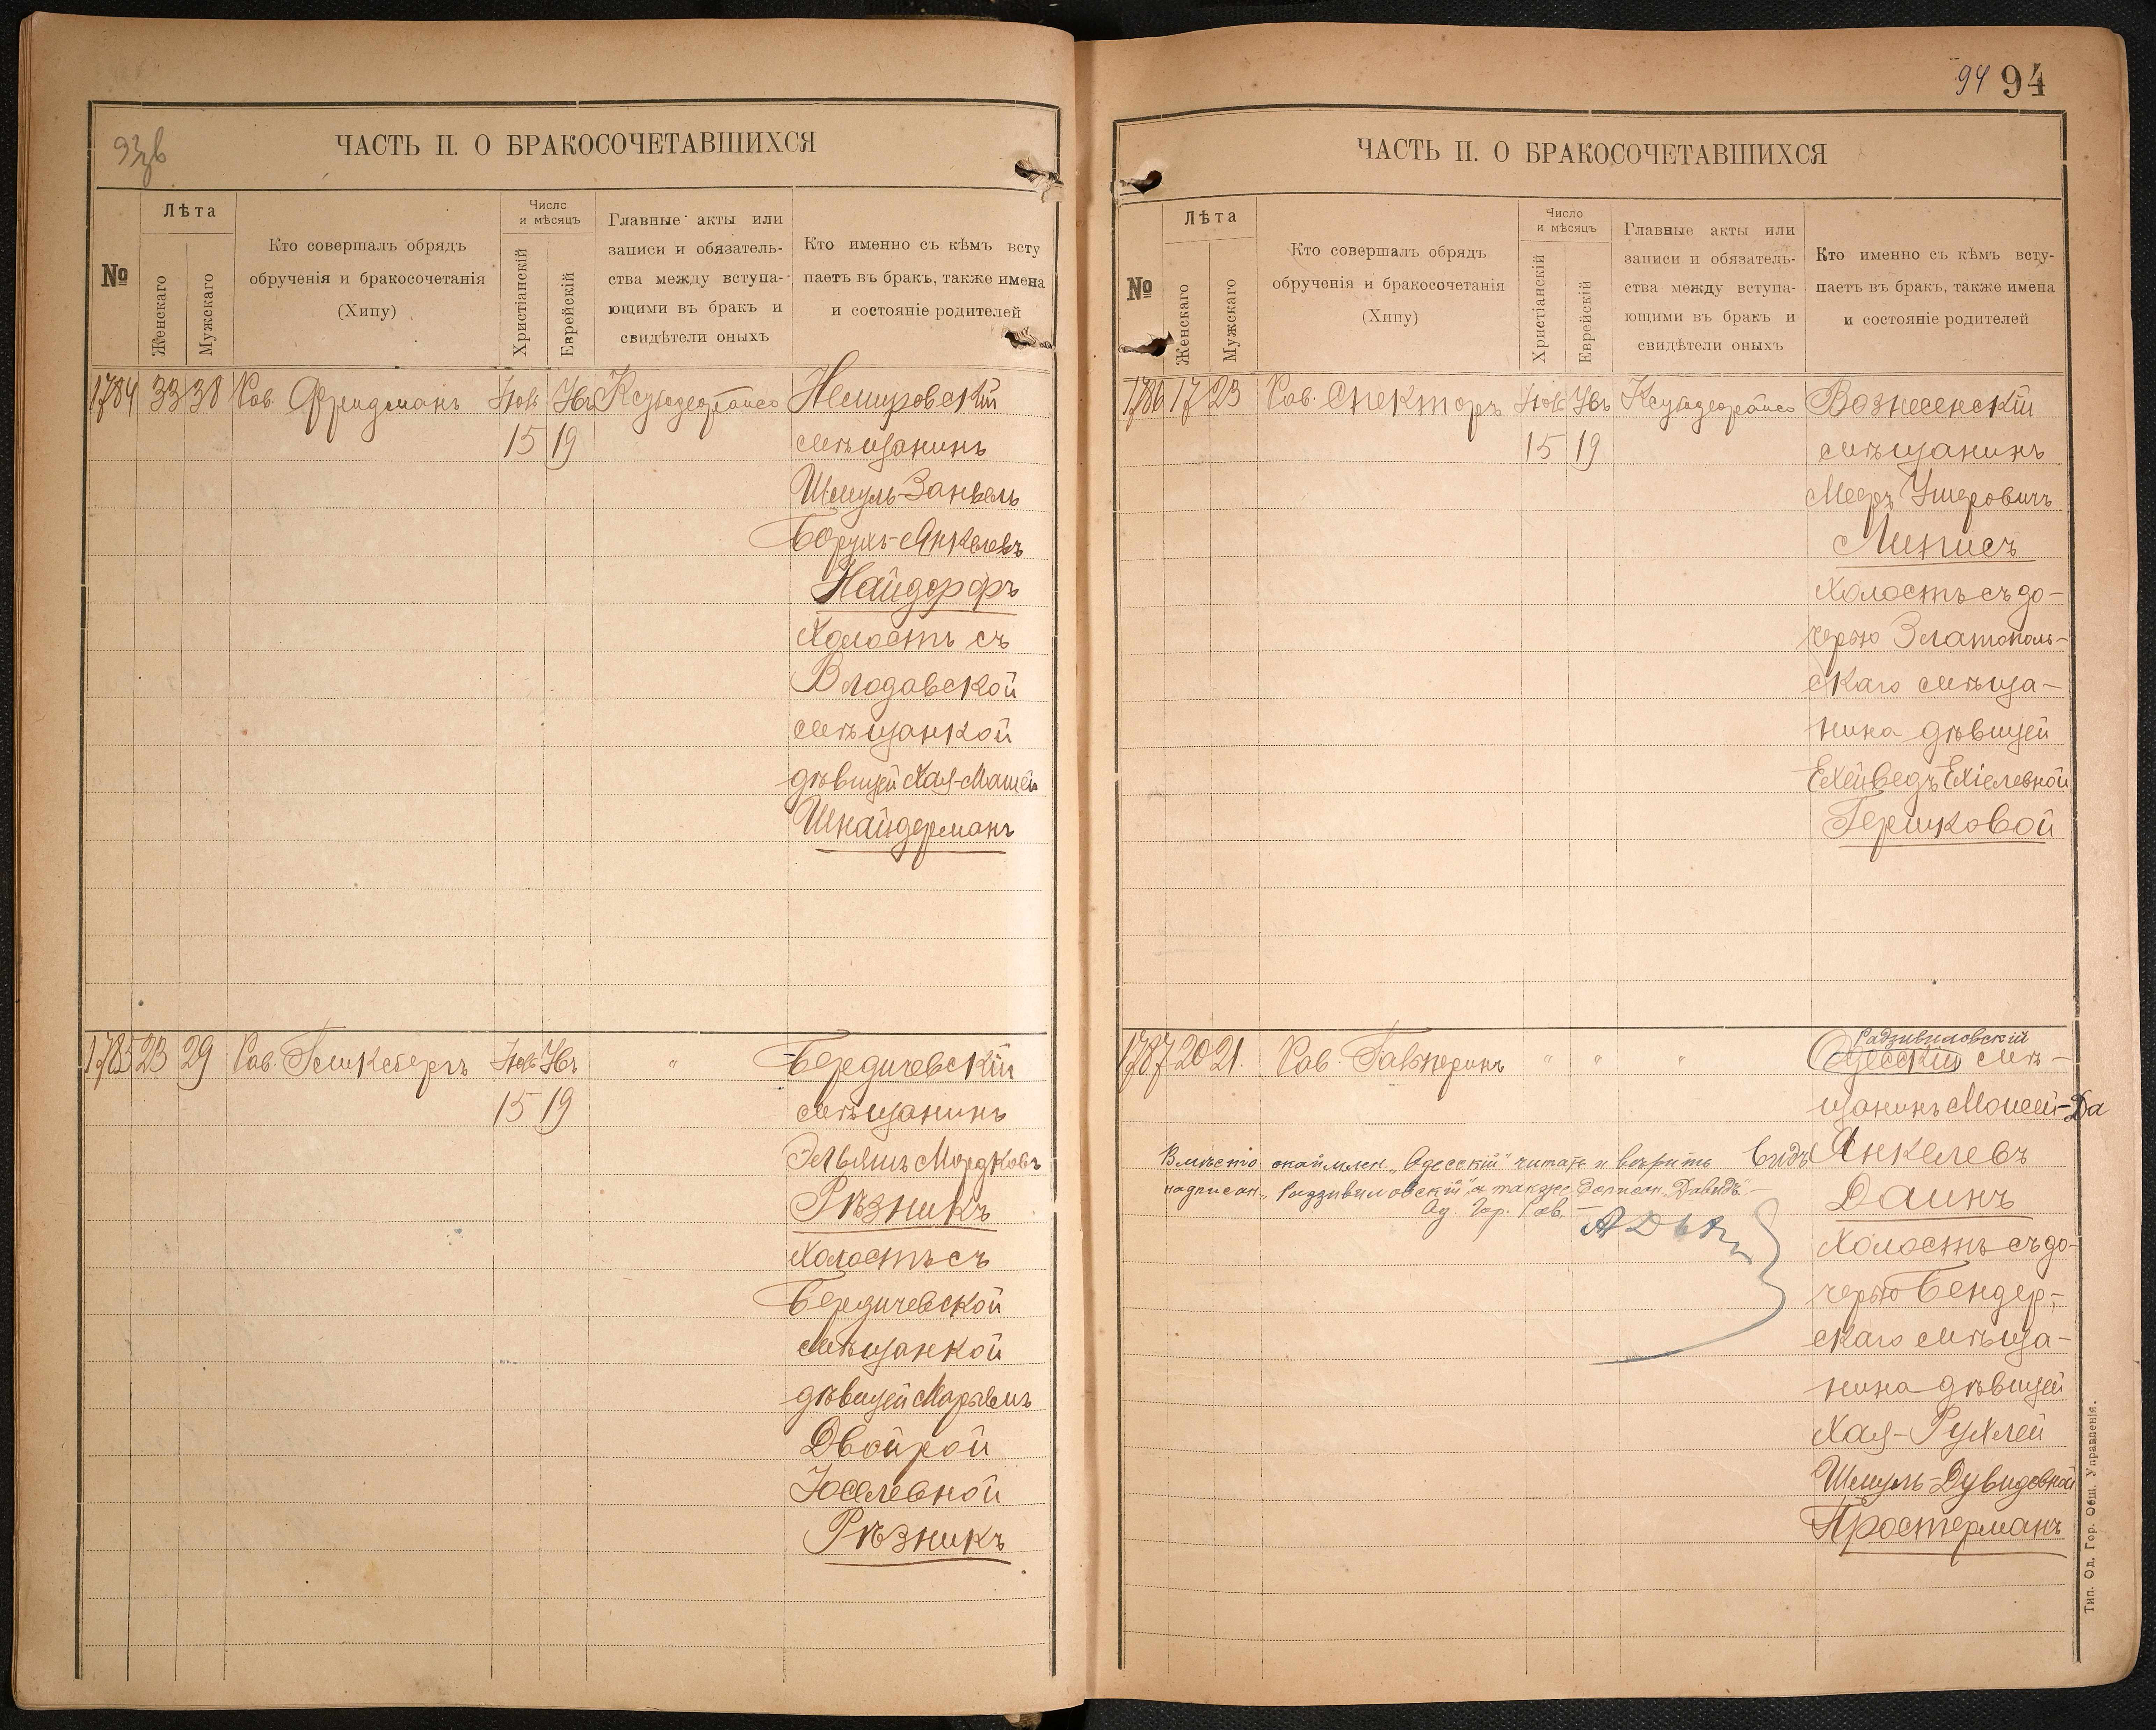 93 зв
ЧАСТЬ II. О БРАКОСОЧЕТАВШИХСЯ
№
Лѣта
Женскаго
Мужскаго
Кто совершалъ обрядъ
обрученія и бракосочетанія
(Хипу)
Число
и мѣсяцъ
Христіанскій
Еврейскій
Главные акты или
записи и обязатель-
ства между вступа-
ющими въ бракъ и
свидѣтели оныхъ
Кто именно съ кѣмъ всту
паетъ въ бракъ, также имена
и состояніе родителей
1784 33 38 Рав. Фридманъ
15 19
Немировскій
мѣщанинъ
Шмуль-Занвель
Борухъ-Янкелевъ
Найдорфъ
Холостъ съ
Влодавской
мѣщанкой
дѣвицей Хая-Машей
Шнайдерманъ
1785 23 29 Рав.
15 19
"
Бердичевскій
мѣщанинъ
Эльяшъ Мордковъ
Рѣзникъ
Холостъ съ
Бердичевской
мѣщанкой
дѣвицей Марьемъ
Двойрой
Іоселевной
Рѣзникъ
94 94
ЧАСТЬ II. О БРАКОСОЧЕТАВШИХСЯ
№
Лѣта
Женскаго
Мужскаго
Кто совершалъ обрядъ
обрученія и бракосочетанія
(Хипу)
Число
и мѣсяцъ
Христіанскій
Еврейскій
Главные акты или
записи и обязатель-
ства между вступа-
ющими въ бракъ и
свидѣтели оныхъ
Кто именно съ кѣмъ всту-
паетъ въ бракъ, также имена
и состояніе родителей
1786 17 23 Рав. Спекторъ
15 19
Вознесенскій
мѣщанинъ
Мееръ Ушеровичъ
Липисъ
Холостъ съ до-
черью Златополь-
скаго мѣща-
нина дѣвицей
Ехейведъ Ехіелевной
Гершковой
1787 20 21. Рав. Гальперинъ " " "
Радзивиловскій
Одесскій мѣ-
щанинъ Моисей-Да
видъ Янкелевъ
Даинъ
Холостъ съ до-
черью Бендер-
скаго мѣща-
нина дѣвицей
Хая-Рухлей
Шмуль-Дувидовной
Простерманъ
Вмѣсто окаймлен. „Одесскій" читать и вѣрить
надписан. „Радзивиловскій", а также дописан. „Давидъ".—
Од. Гор. Рав.
Тип. Од. Гор. Общ. Управленія.